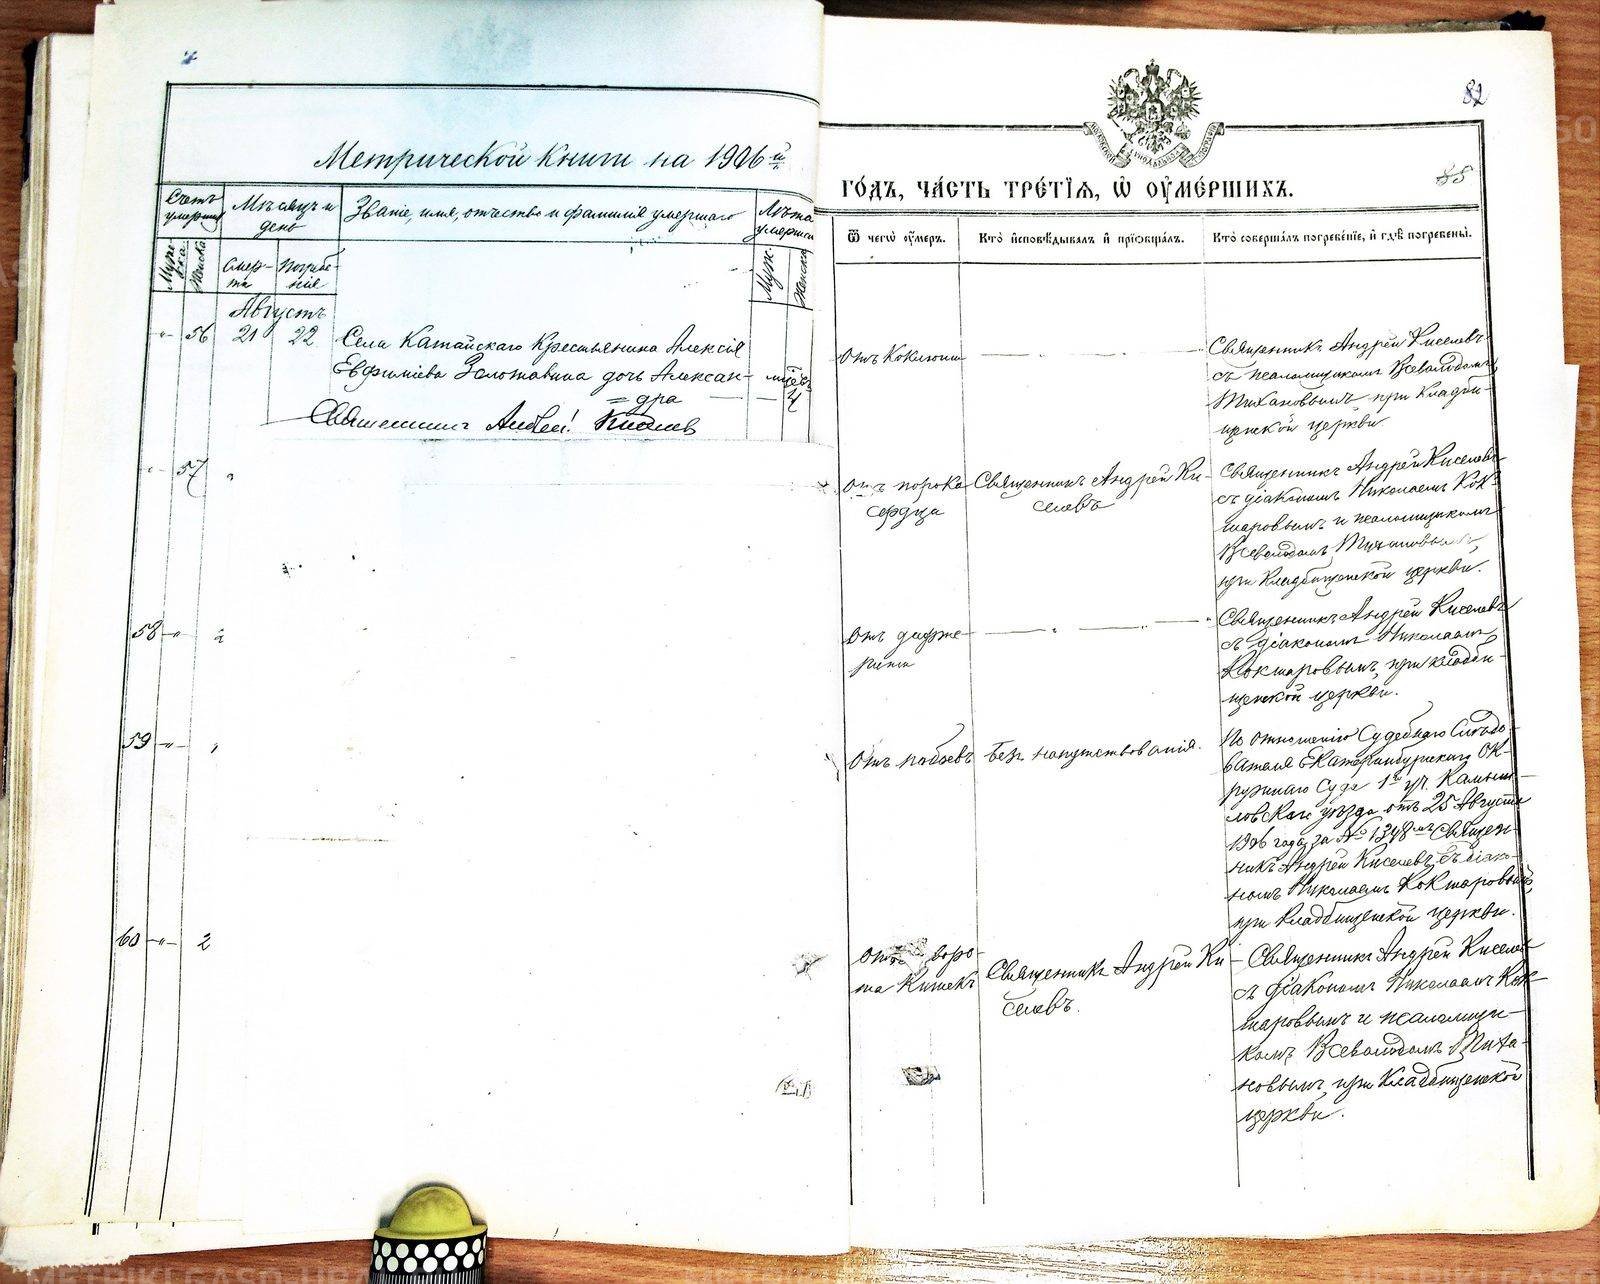 82
85
Метрической книги на 1906 й
Счетъ умерш
Мѣсяцъ и день
Званіе, имя, отчество и фамилія умершаго
Лѣта умерша
Муж
Женска
Смер-
та
Погребе-
нія
Муж
Женска
Августъ
56 21 22
Села Катайскаго Крестьянина Алексія
Евфиміева Золотавина дочь Алексан-
=дра
4
Священникъ Андрей Киселев
57
58
59
60
ГО́ДЪ, ЧА́СТЬ ТРЕ́ТІѦ, Ѡ ОУМЕ́РШИХЪ.
Ѿ чегѡ̀ ᲂу҆́меръ.
Кто̀ и҆сповѣ́дывалъ и҆ прїѡбща́лъ.
Кто̀ соверша́лъ погребе́нїе, и҆ гдѣ̀ погребены̀.
Отъ Коклюша
Священникъ Андрей Киселевъ
съ псаломщикомъ Всеволодомъ
Тихановымъ при кладби-
щенской церкви
Отъ порока
сердца
Священникъ Андрей Ки-
селевъ
Священникъ Андрей Киселевъ
съ діакономъ Николаемъ Кок-
шаровымъ и псаломщикомъ
Всеволодомъ Тихановымъ,
при кладбищенской церкви.
Отъ
Священникъ Андрей Киселевъ
съ діакономъ Николаемъ
Кокшаровымъ, при кладби-
щенской церкви.
Отъ побоевъ
Безъ напутствованія.
По отношенію Судебнаго Слѣдо-
вателя Екатеринбургскаго Ок-
ружнаго Суда 1го уч. Камыш-
ловскаго уѣзда отъ 25 Августа
1906 года за № 1348мъ Священ-
никъ Андрей Киселевъ съ діако-
номъ Николаемъ Кокшаровымъ,
при кладбищенской церкви.
воро-
та Кишекъ
Священникъ Андрей Ки-
селевъ.
Священникъ Андрей Киселевъ
съ діакономъ Николаемъ Кок-
шаровымъ и псаломщи-
комъ Всеволодомъ Тиха-
новымъ, при кладбищенской
церкви.